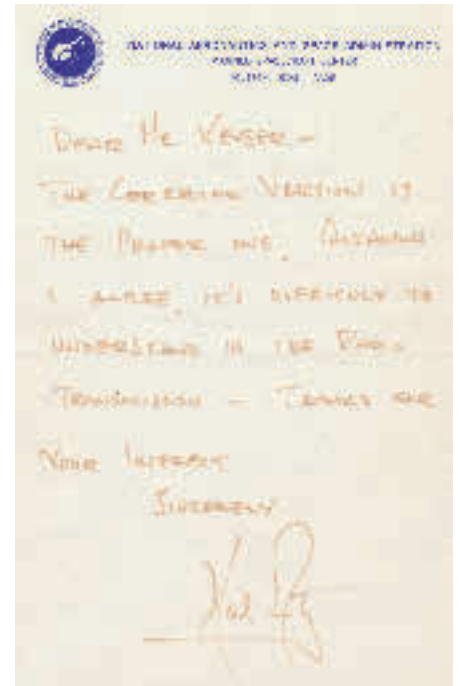 NATIONAL AERONAUTICS AND SPACE ADMINISTRATION
MANNED SPACECRAFT CENTER
HOUSTON, TEXAS
DEAR MR
THE VERSION IS
THE PROPER ONE. ALTHOUGH
I AGREE, IT'S DIFFICULT TO
UNDERSTAND IN THE RADIO
TRANSMISSION — THANKS FOR
YOUR INTEREST
SINCERELY